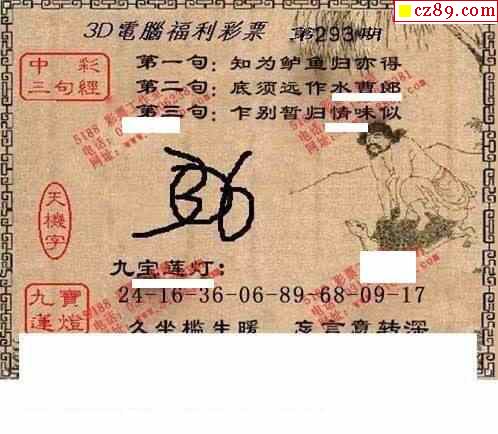 cz89.com
3D電腦福利彩票 第293期
中彩三句經
第一句：知为鲈鱼归亦得
第二句：底须远作水曹郎
第三句：乍别暂归情味似
天機字
36
九宝莲灯：
九寶蓮燈
24-16-36-06-89-68-09-17
久坐槛生暖 忘言意转深